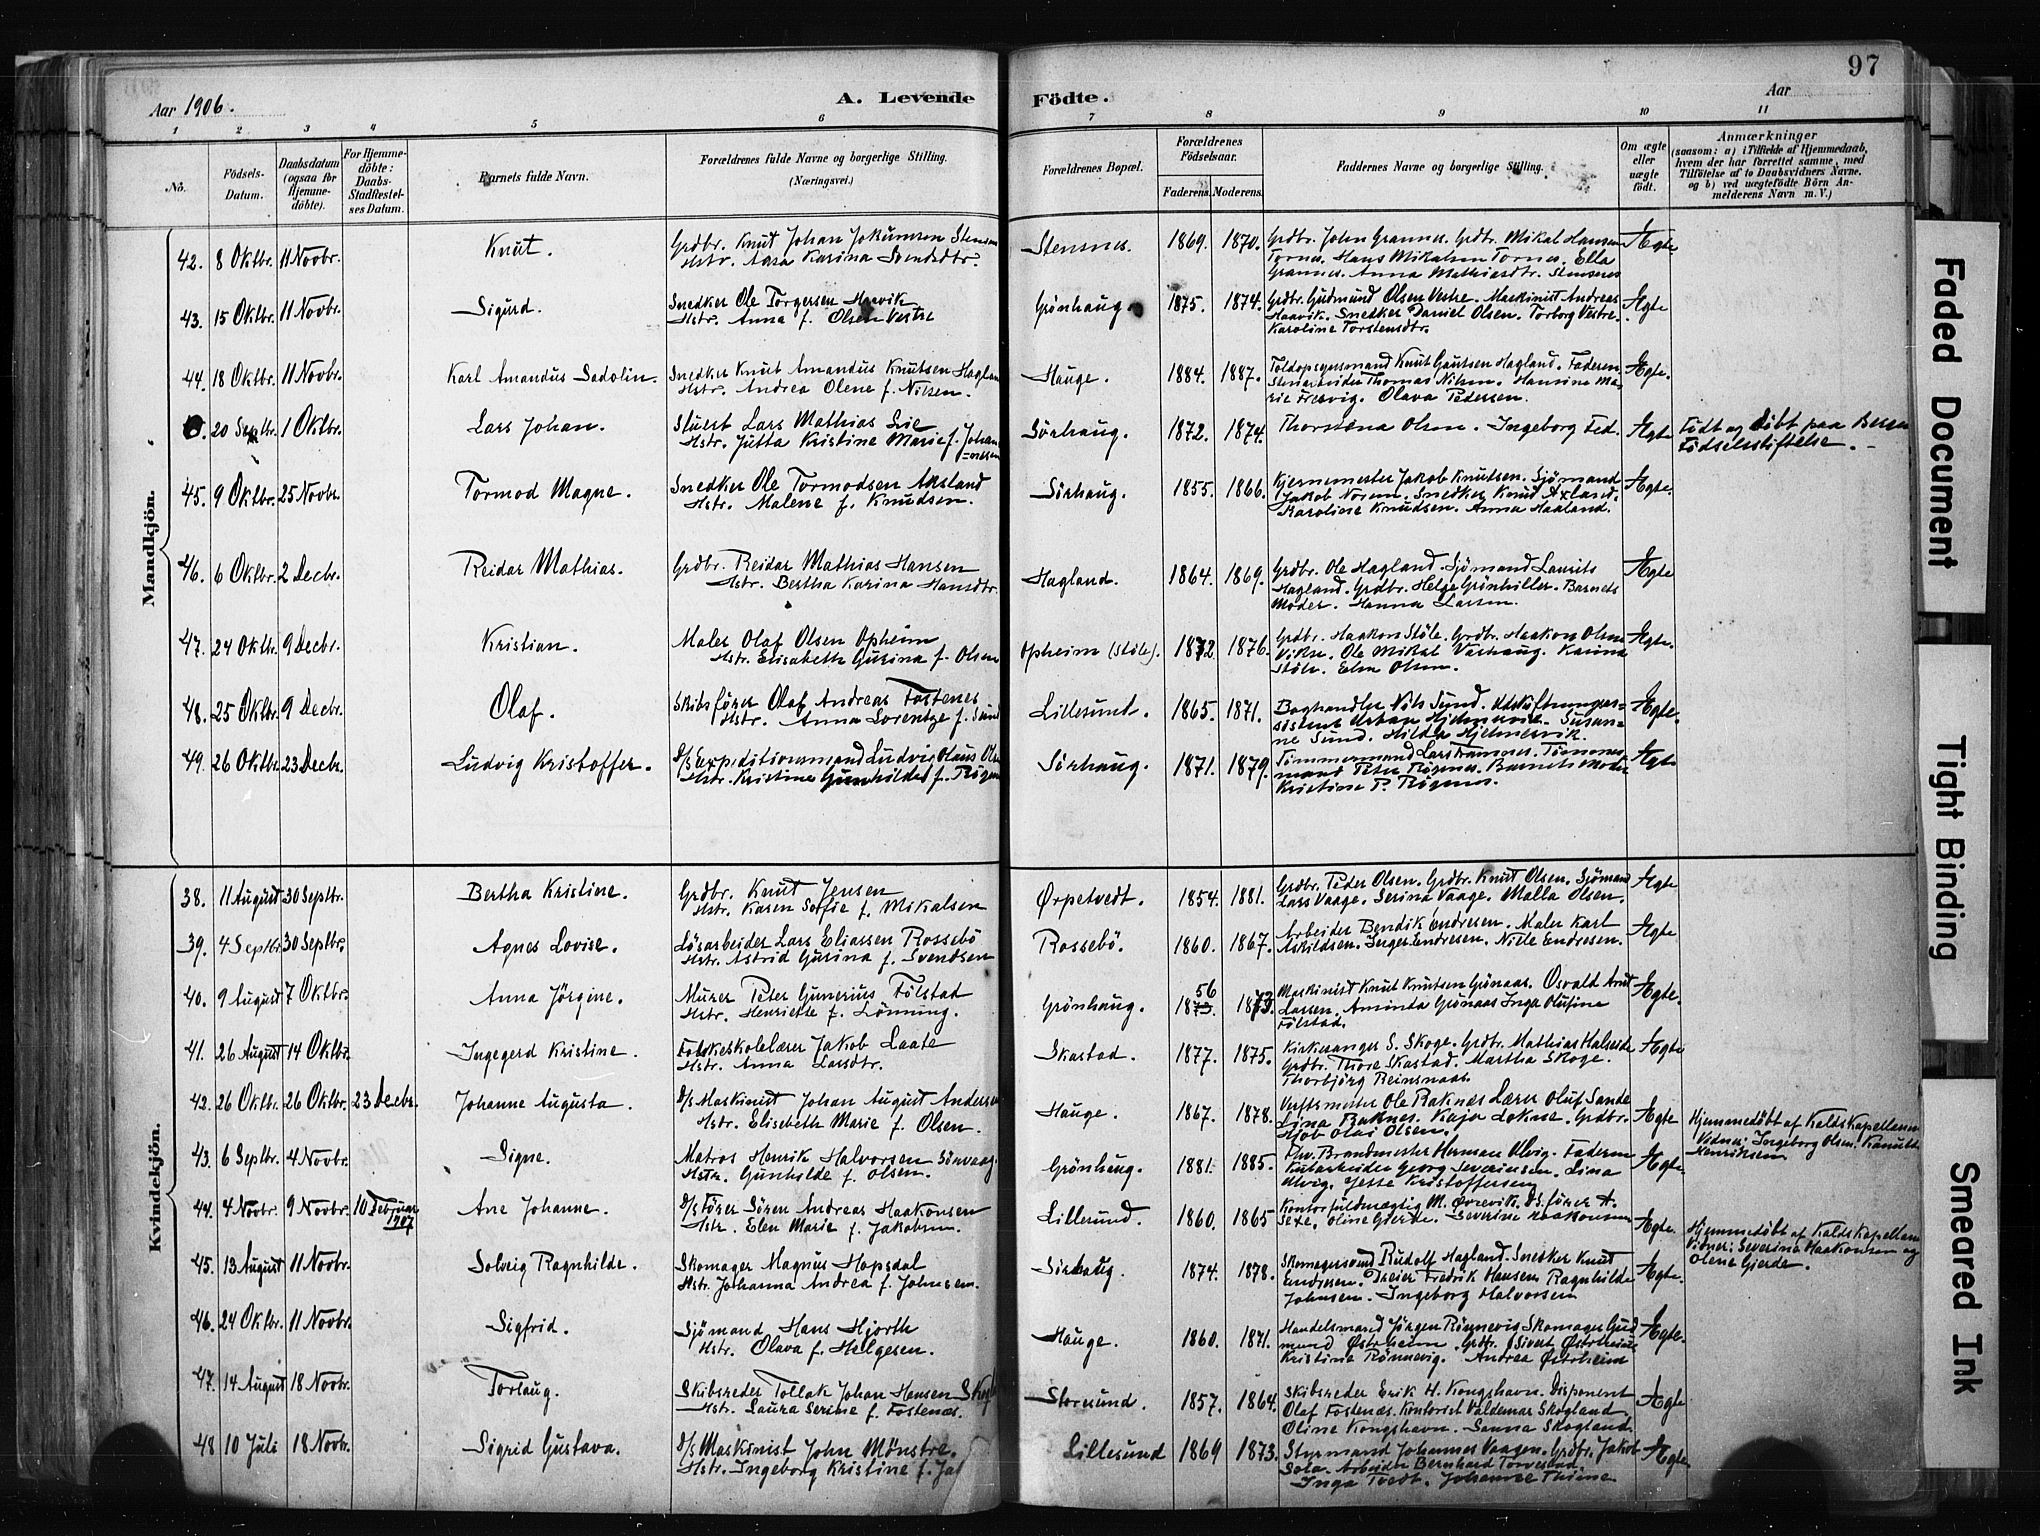 97
Aar 1906.
A. Levende
Födte.
Aar
1 2 3 4 5 6 7 8 9 10 11
No.
Födsels-
Datum.
Daabsdatum
(ogsaa for
Hjemme-
döbte).
For Hjemme-
döbte:
Daabs-
Stadfestel-
ses Datum.
Barnets fulde Navn.
Forældrenes fulde Navne og borgerlige Stilling.
(Næringsvei.)
Forældrenes Bopæl.
Forældrenes
Födselsaar.
Faderens. Moderens.
Faddernes Navne og borgerlige Stilling.
Om ægte
eller
uægte
födt.
Anmærkninger
(saasom: a) i Tilfælde af Hjemmedaab,
hvem der har forrettet samme, med
Tilföielse af to Daabsvidners Navne.
og b) ved uægtefödte Börn An-
melderens Navn m. V.)
Mandkjön.
42. 8 Oktbr. 11 Novbr. Knut. Grdbr. Knut Johan Jokumsen
Hstr. Aasa Karina Svendsdtr. Stensnes. 1869. 1870. Grdbr. John Grannes. Grdbr. Mikal Hansen
Tornes. Hans Mikalsen Tornes. Ella
Grannes. Anna Mathiasdtr. Stensnes Ægte
43. 15 Oktbr. 11 Novbr. Sigurd. Snedker Ole Torgersen Haavik
Hstr. Anna f. Olsen Vestre Grönhaug. 1875. 1874. Grdbr. Gudmund Olsen Vestre. Maskinist Andreas
Haavik. Snedker Daniel Olsen. Torborg Vestre.
Karoline Torstensdtr. Ægte
44. 18 Oktbr. 11 Novbr. Karl Amandus Sadolin. Snedker Knut Amandus Knutsen
Hstr. Andrea Olene f. Nilsen. Hauge. 1884. 1887. Toldopsynsmand Knut Gautsen Hagland. Faderen
Thomas Nilsen. Hansine Ma-
rie. Olava Pedersen. Ægte.
20 Septbr. 1 Oktbr. Lars Johan. Stuert Lars Mathias
Hstr. Jutta Kristine Marie f. Johan-
nessen Sörhaug. 1872. 1874. Olsen. Ingeborg Ægte Födt og döbt paa Bergen
Födselsstiftelse.
45. 9 Oktbr. 25 Novbr. Tormod Magne. Snedker Ole Tormodsen Aksland
Hstr. Malene f. Knudsen. Sörhaug. 1855. 1866. Jakob Knutsen. Sjömand
Jakob Norem. Snedker Knud Axland.
Karoline Knudsen. Anna Haaland. Ægte.
46. 6 Oktbr. 2 Decbr. Reidar Mathias. Grdbr. Reidar Mathias Hansen
Hstr. Bertha Karina Hansdtr. Hagland. 1864. 1869. Grdbr. Ole Hagland. Sjömand Laurits
Hagland. Grdbr. Helge Grönhiller. Barnets
Moder. Hanna Larsen. Ægte
47. 24 Oktbr. 9 Decbr. Kristian. Maler Olaf Olsen Opheim
Hstr. Elisabeth Gurina f. Olsen Opheim (Stöle). 1872 1876. Grdbr. Haakon Stöle. Grdbr. Haakon Olsen
Ole Mikal Karina
Stöle. Olsen. Ægte.
48. 25 Oktbr. 9 Decbr. Olaf. Skibsförer Olaf Andreas Fostenes
Hstr. Anna Lorentze f. Sund Lillesund. 1865. 1871. Boghandler Nils Sund.
Susan-
ne Sund. Hilda Hjelmervik. Ægte.
49. 26 Oktbr. 23 Decbr. Ludvig Kristoffer. D/s Expeditionsmand Ludvig Olaus
Hstr. Kristine Gunhilde f. Sörhaug. 1871. 1879. Tömmermand Lars. Tömmer-
mand Peter. Barnets Moder
Kristine P. Ægte
Kvindekjön.
38. 11 August 30 Septbr. Bertha Kristine. Grdbr. Knut Jensen
Hstr. Karen Sofie f. Mikalsen Ørpetvedt. 1854. 1881. Grdbr. Peder Olsen. Grdbr. Knut Olsen. Sjömand
Lars Vaage. Serina Vaage. Malla Olsen. Ægte
39. 4 Septbr 30 Septbr. Agnes Lovise. Lösarbeider Lars Eliassen Rossebö
Hstr. Astrid Gurina f. Svendsen Rossebö. 1860. 1867. Arbeider Bendik Endresen. Maler Karl
Askildsen. Inger Endresen. Nille Endresen. Ægte
40. 9 August 7 Oktbr. Anna Jörgine. Murer Peter Gunerius Fölstad
Hstr. Henriette f. Lönning. Grönhaug. 56
1873. 1873. Maskinist Knut Knutsen Grönaas. Osvald
Larsen. Aminda Grönaas Inga Olufine
Fölstad. Ægte.
41. 26 August 14 Oktbr. Ingegerd Kristine. Folkeskolelærer Jakob Laate
Hstr. Anna Larsdtr. Skastad. 1877. 1875. Kirkesanger S. Skoge. Grdbr. Mathias
Grdbr. Thore Skastad. Martha Skoge.
Thorbjörg Reinsnaas. Ægte
42. 26 Oktbr. 26 Oktbr. 23 Decbr. Johanne Augusta. D/s Maskinist Johan August Andersen
Hstr. Elisebeth Marie f. Olsen. Hauge. 1867. 1878. Verftsmester Ole Raknæs Lærer Oluf Sande
Lina Raknes. Kaja Lokne. Grdbr.
Olai Olsen. Ægte Hjemmedöbt af Kaldskapellanen
Vidner: Ingeborg Olsen.
Henriksen
43. 6 Septbr. 4 Novbr. Signe. Matros Henrik Halvorsen
Hstr. Gunhilde f. Olsen. Grönhaug. 1881. 1885. Brandmester Herman Alvig. Faderen
Georg Severinsen. Lina
Alvig. Jette Kristoffersen Ægte.
44. 4 Novbr. 9 Novbr. 10 Februar
1907 Ane Johanne. D/s förer Sören Andreas Haakonsen
Hstr. Elen Marie f. Jakobsen. Lillesund. 1860. 1865 Kontorfuldmægtig M. Ørrevik. Ds. förer A.
Sexe. Oline Gjerde. Severine Haakonsen Ægte. Hjemmedöbt af Kaldskapellanen
Vidner: Severina Haakonsen og
Olene Gjerde.
45. 13 August 11 Novbr. Solveig Ragnhilde. Skomager Magnus Hopsdal
Hstr. Johanna Andrea f. Johnsen. Sörhaug. 1874. 1878. Skomagersvend Rudolf Hagland. Snedker Knut
Endresen. Dreier Fredrik Hansen Ragnhilde
Johnsen. Ingeborg Halvorsen Ægte.
46. 24 Oktbr. 11 Novbr. Sigfrid. Sjömand Hans Hjorth
Hstr. Olava f. Helgesen. Hauge. 1860. 1871. Handelsmand Jörgen Rönnevig. Skomager Gud-
mund Østrheim. Grdbr. Sivert Østrheim
Kristine Rönnevig. Andrea Østrheim Ægte.
47. 14 August 18 Novbr. Torlaug. Skibsreder Tollak Johan Hansen
Hstr. Laura Serine f. Fostenæs. Storesund. 1857. 1864. Skibsreder Erik H. Kongshavn. Disponent
Olaf Fostenæs. Kontorist Valdemar Skogland
Oline Kongshavn. Sanna Skogland. Ægte
48 10 Juli 18 Novbr. Sigrid Gustava. D/s Maskinist John Mönstre.
Hstr. Ingeborg Kristine f. Lillesund 1869 1873. Styrmand Johannes Vaagen. Grdbr. Jakob
Arbeider Bernhard
Inga Tvedt. Johanne Ægte.
Faded Document
Tight Binding
Smeared Ink